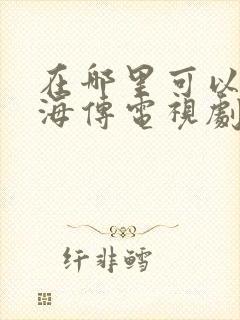 在哪里可以
海傳電視劇
纤非鳕